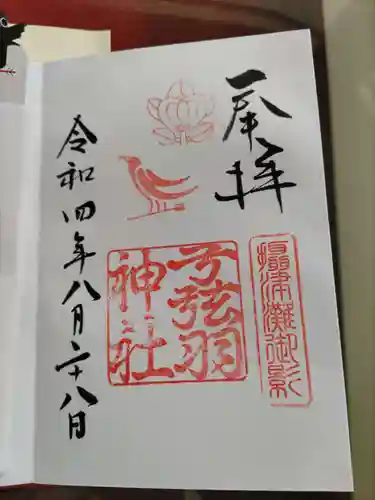 奉拝
攝津灘御影
弓弦羽
神社
令和四年八月二十八日